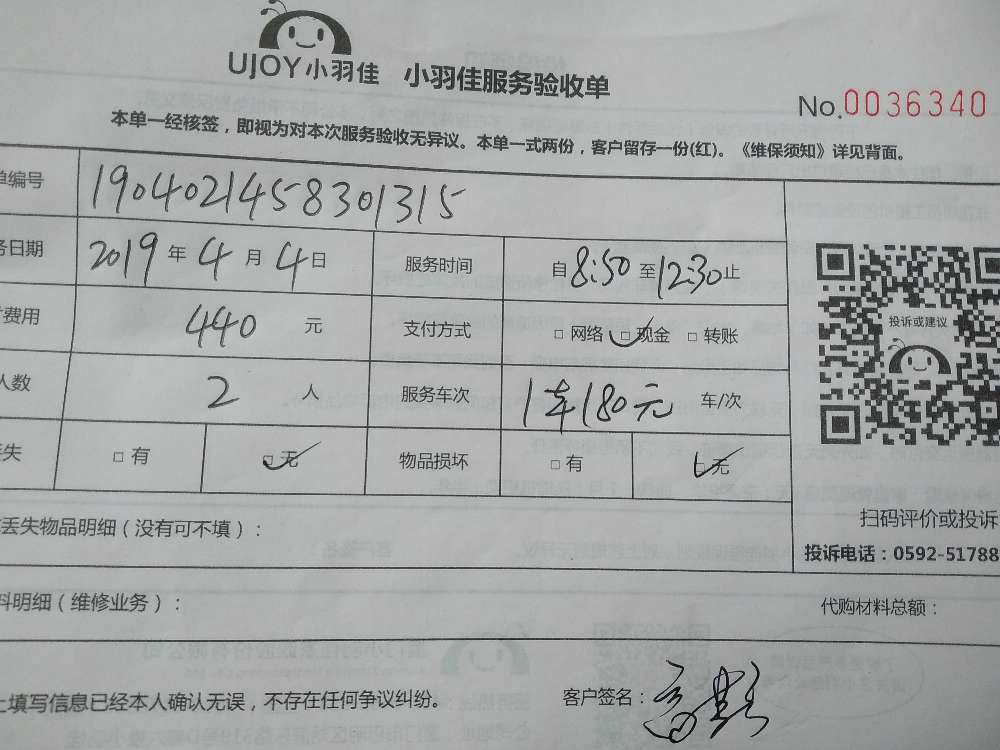 UJOY小羽佳 小羽佳服务验收单
No.0036340
本单一经核签，即视为对本次服务验收无异议。本单一式两份，客户留存一份(红)。《维保须知》详见背面。
单编号 1904021458301315
务日期 2019 年 4 月 4 日 服务时间 自 8:50 至 12:30 止
费用 440 元 支付方式 □ 网络 □ 现金 □ 转账
人数 2 人 服务车次 1车180元 车/次
失 □ 有 □ 无 物品损坏 □ 有 □ 无
投诉或建议
扫码评价或投诉
投诉电话：0592-51788
丢失物品明细（没有可不填）：
料明细（维修业务）： 代购材料总额：
上填写信息已经本人确认无误，不存在任何争议纠纷。 客户签名：